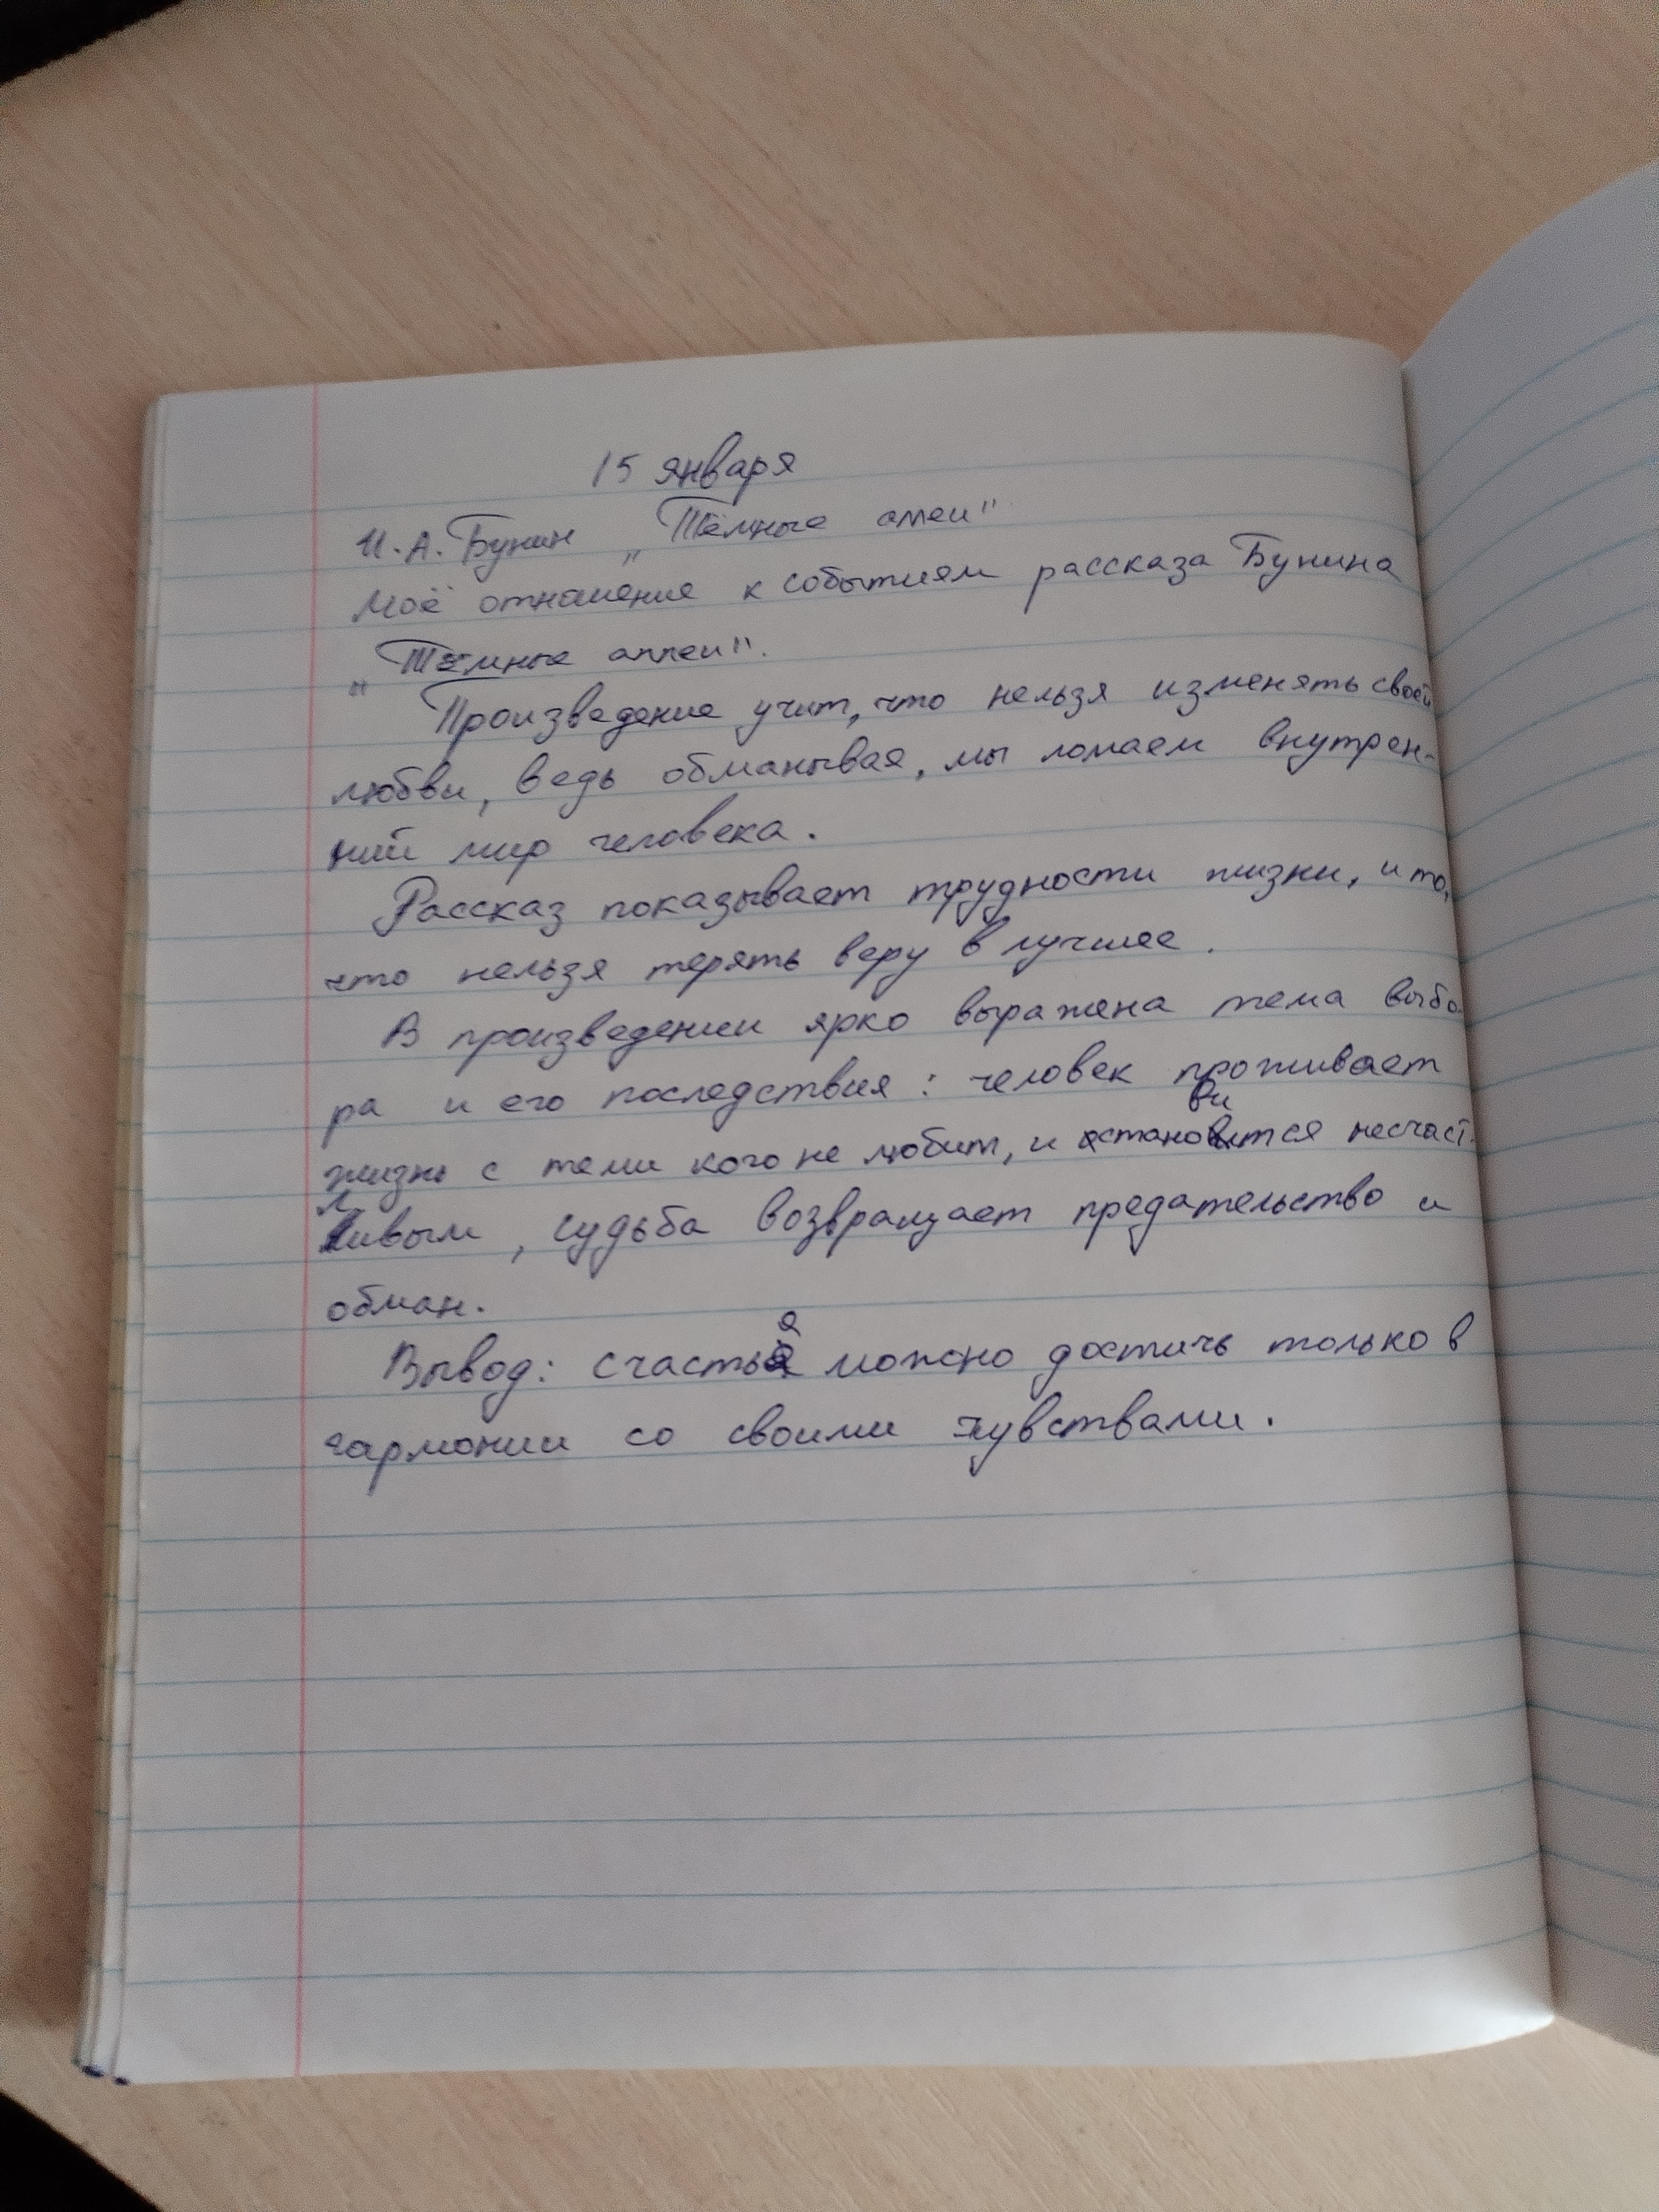 15 января
И. А. Бунин „Тёмные аллеи"
Моё отношение к событиям рассказа Бунина
„Тёмные аллеи".
Произведение учит, что нельзя изменять своей
любви, ведь обманывая, мы ломаем внутрен-
ний мир человека.
Рассказ показывает трудности жизни, и то,
что нельзя терять веру в лучшее.
В произведении ярко выражена тема выбо-
ра и его последствия: человек проживает
жизнь с теми кого не любит, и становится несчаст-
ливым, судьба возвращает предательство и
обман.
Вывод: счастья можно достичь только в
гармонии со своими чувствами.